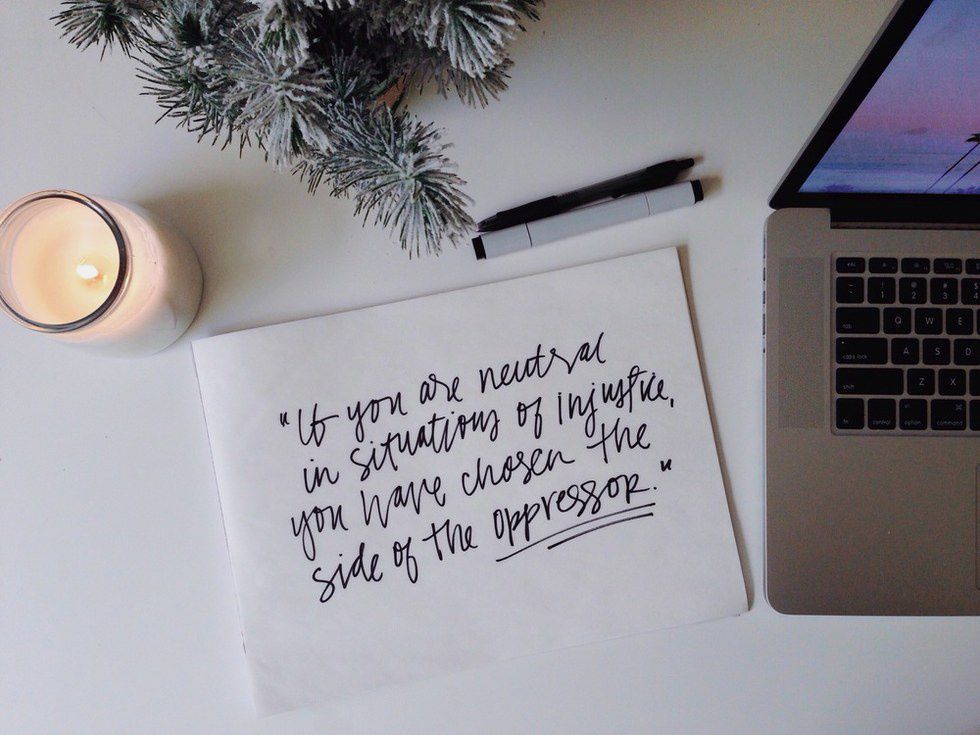 "If you are neutral
in situations of injustice,
you have chosen the
side of the oppressor."
tab
Q W E
caps lock
A S D
shift
Z X C
fn control option command